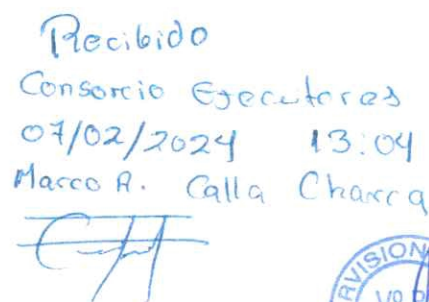 Recibido
Consorcio Ejecutores
07/02/2024 13:04
Marco A. Calla Charca
VISION